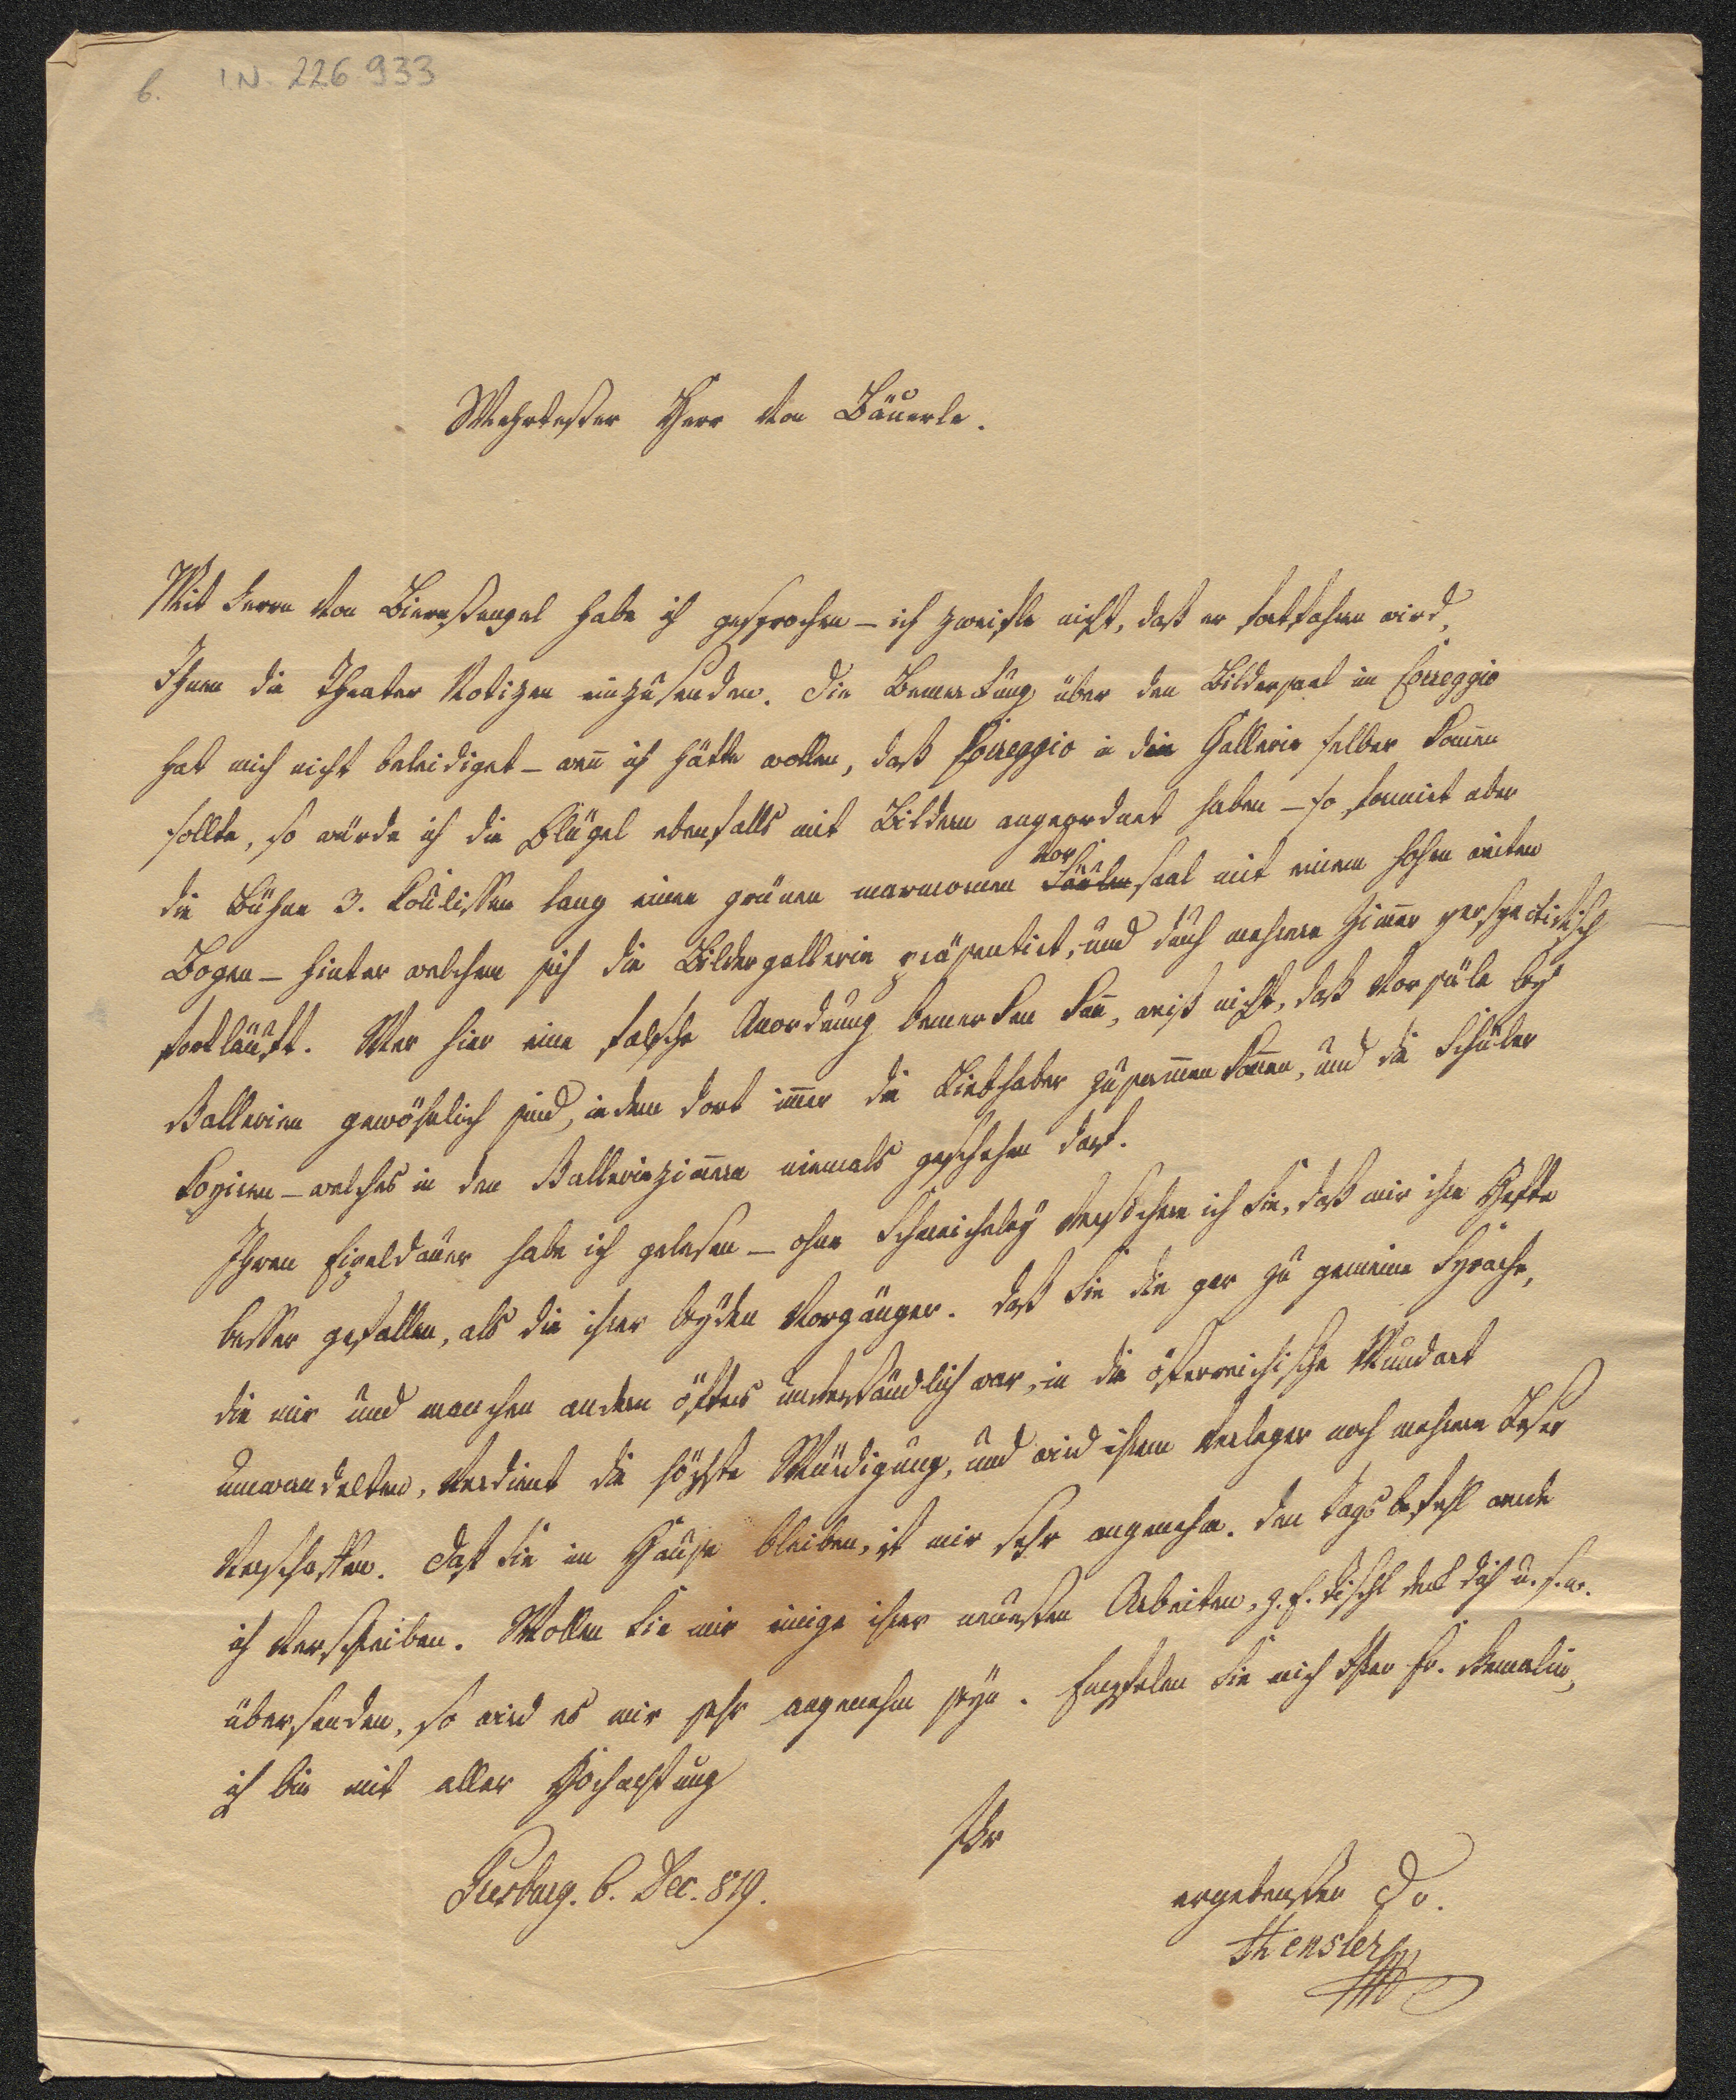 6. I.N. 226 933
Wehrtester Herr von Bäuerle.
Mit Herrn von Biernstengel habe ich gesprochen – ich zweifle nicht, daß er fortfahren wird,
Ihnen die Theater Notizen einzusenden. Die Bemerkung über den Bildersaal im Correggio
hat mich nicht beleidiget – wen̄ ich hätte wollen, daß Correggio in die Gallerie selber kom̄en
sollte, so würde ich die Flügel ebenfalls mit Bildern angeordnet haben – so formirt aber
die Bühne 3. Koulissen lang einen grünen marmornen Vor
saal mit einem hohen weiten
Bogen – hinter welchem sich die Bildergallerie präsentirt, und durch mehrere Zim̄er perspectivisch
fortläuft. Wer hier eine falsche Anordnung bemerken kan̄, weiß nicht, daß Vorsäle bey
Gallerien gewöhnlich sind, indem dort im̄er die Liebhaber zusam̄en kom̄en, und die Schüler
kopiren – welches in den Galleriezim̄ern niemals geschehen darf.
Ihren Eipeldauer habe ich gelesen – ohne Schmeicheley versichere ich Sie, daß mir ihre Hefte
besser gefallen, als die ihrer beyden Vorgänger. Daß Sie die gar zu gemeine Sprache,
die mir und manchen andern öfters unverständlich war, in die österreichische Mundart
umwandelten, verdient die höchste Würdigung, und wird ihrem Verleger noch mehrere Leser
verschaffen. Daß Sie im Hause bleiben, ist mir sehr angenehm. Den Tagsbefehl werde
ich verschreiben. Wollen Sie mir einige ihrer neuesten Arbeiten, z. B. Tischl deck dich u. s. w.
übersenden, so wird es mir sehr angenehm seyn. Empfelen Sie mich Ihrer Fr. Gemalin,
ich bin mit aller Hochachtung
Ihr
Presburg. 6. Dec. 819.
ergebenster Dr.
Hensler